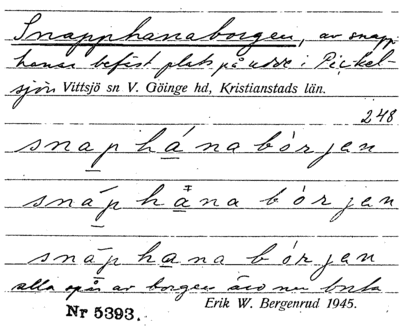 Snapphanaborgen, av snapp
hanar befäst plats på udde i Pickel-
sjön Vittsjö sn V. Göinge hd, Kristianstads län.
248
snaphána bórjen
snáphåna bórjan
snāphana bórjen
alla spår av borgen äro nu borta
Erik W. Bergenrud 1945.
Nr 5393.